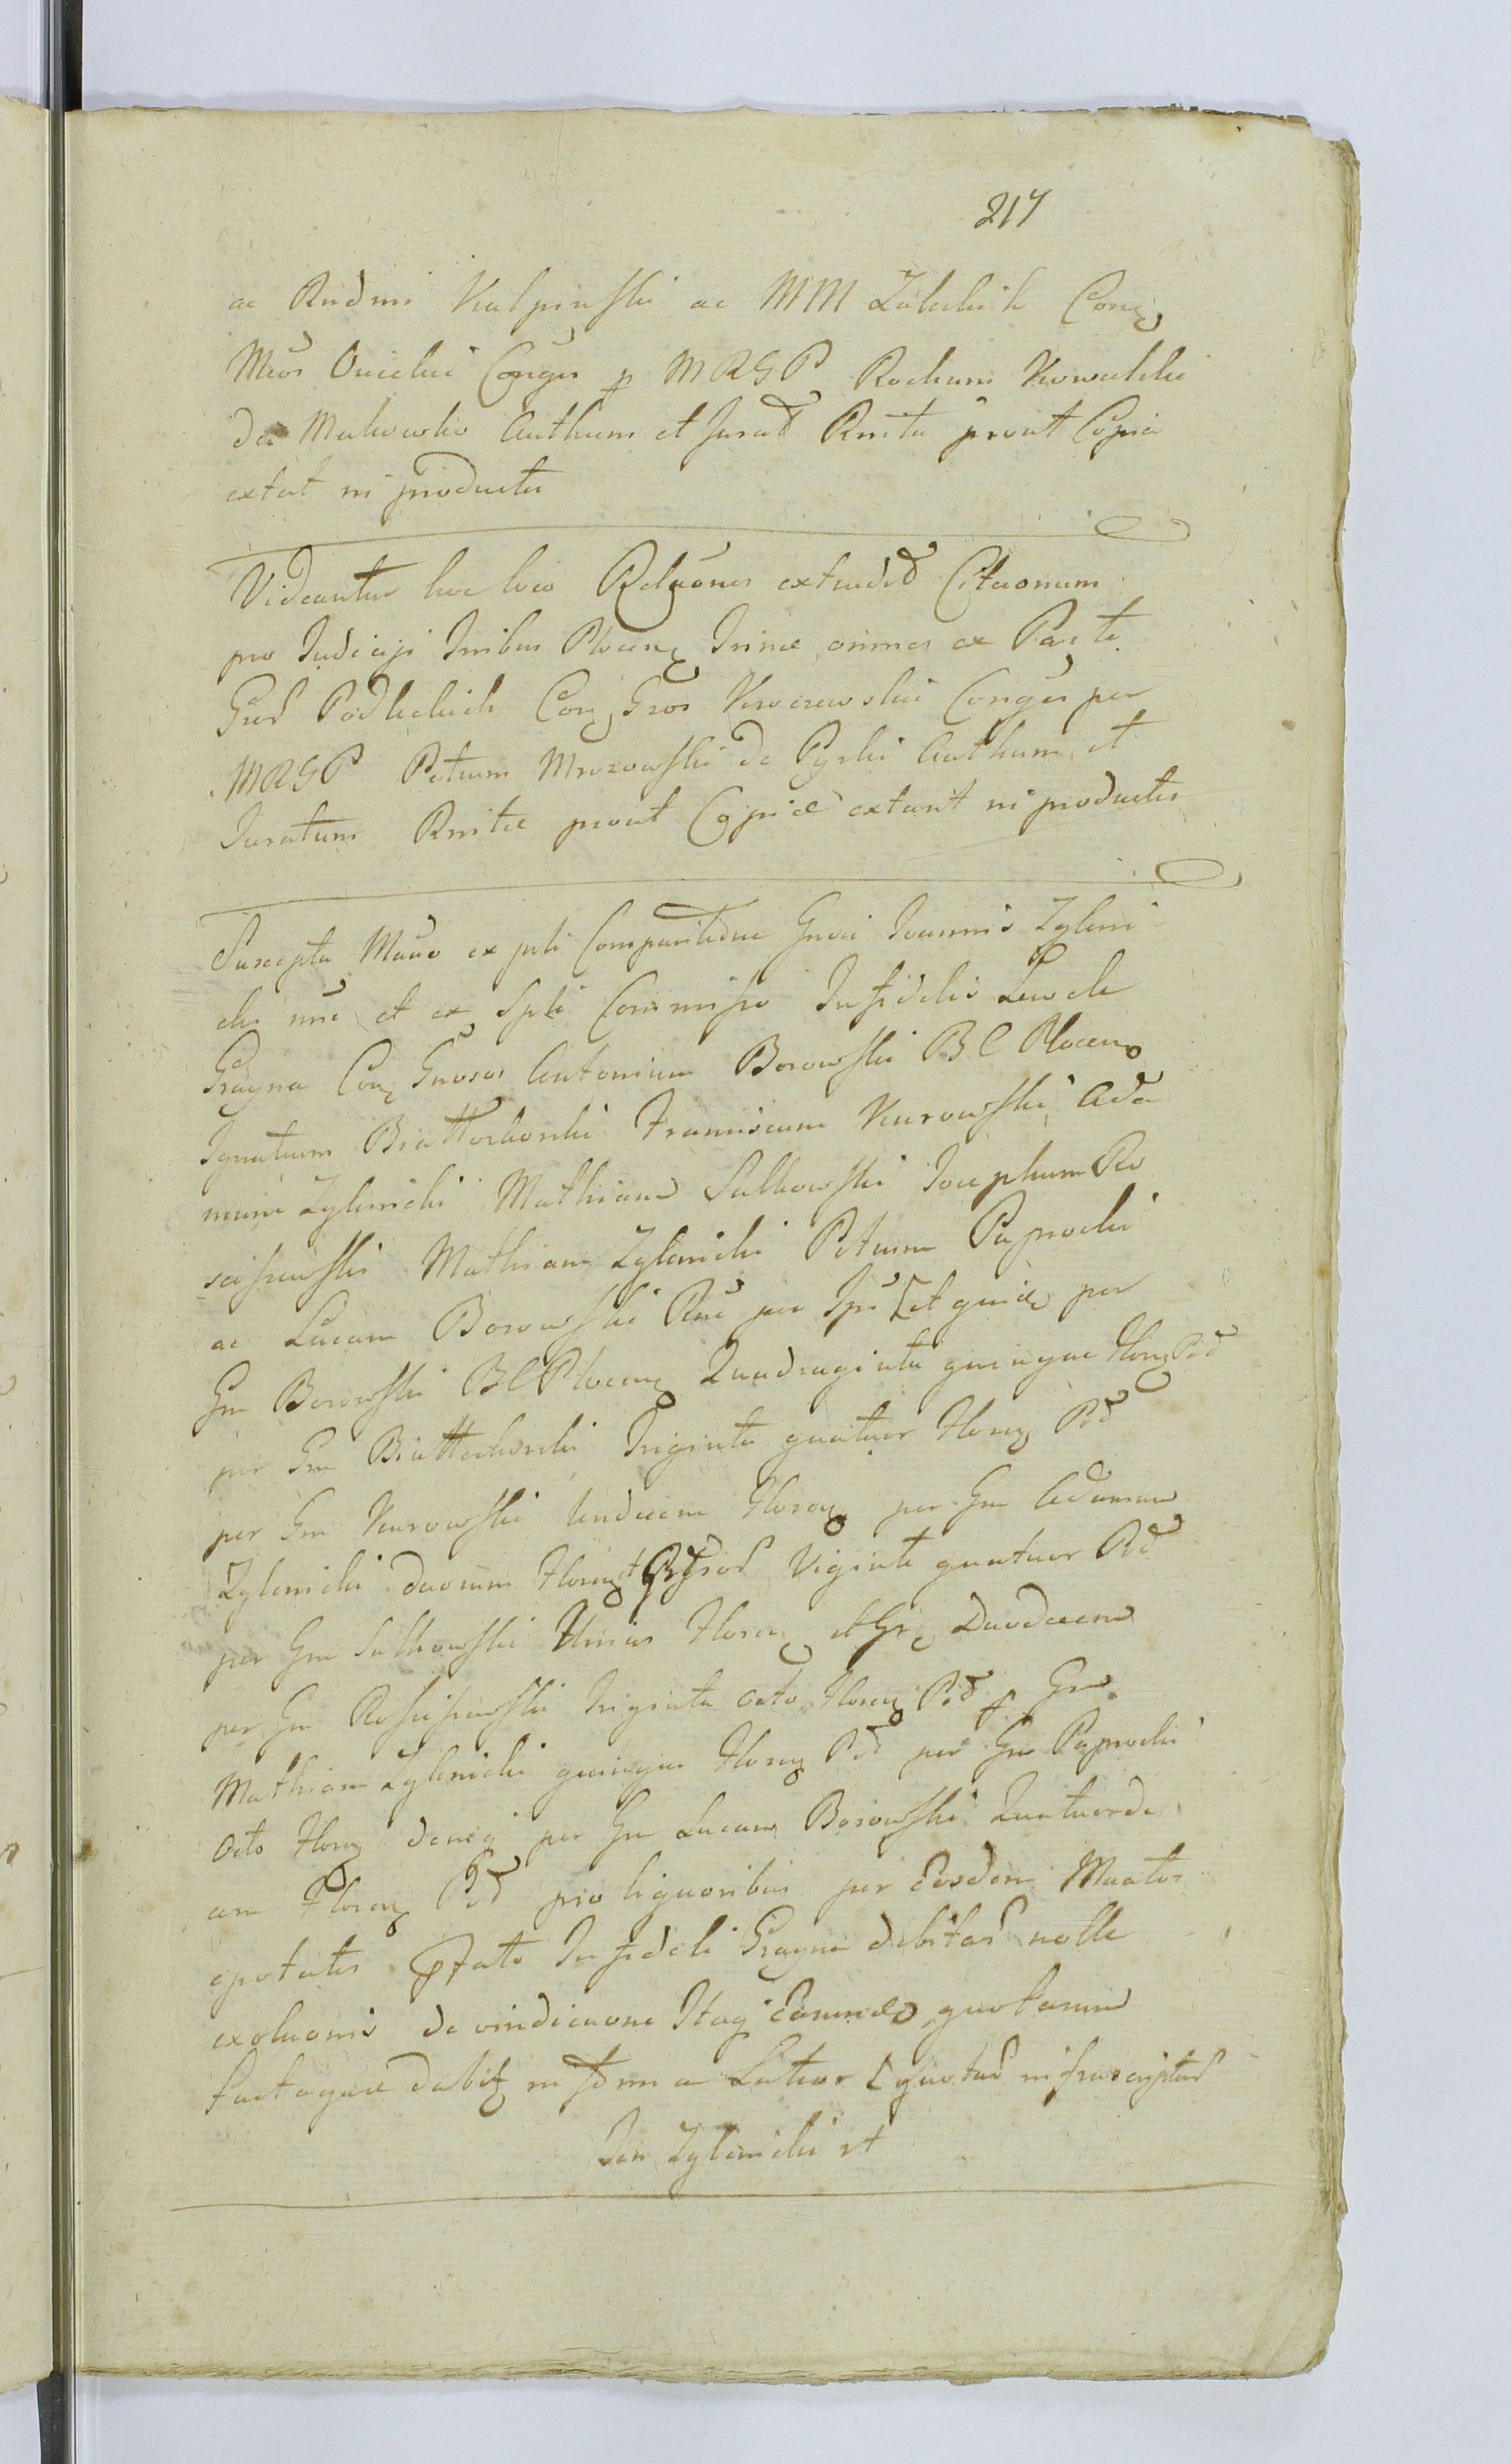 217
ac Rndmi Kalpinski ac MM Zaleckich Conq
Mvos Onickie Conges p MRGP Rochum Kowalski
de Makowko Authum et Jurad Rnita prout Copia
extat ni producta
Videantur hic loco Relaones extradid Citaonum
pro Judicijs Tribus Plocens Trinae omnes ex Parte
Gnod Podleckich Con Gnos Kroczewskie Conges per
MRGP Petrum Mrozowski de Pyski Authum et
Juratum Rnitae prout Copiae extant ni productis
Suscepta Mano ex pnti Comparitione Gnosi Joannis Zyleni
cki nne et ex spli Commisso Infidelis Lewek
Grayna Con Gnosos Antonium Borowski BC Plocens
Ignatium Biattochorski Franciscum Kurowski Ada
mum Zylinicki Mathiam Sulkowski Josephum Ro
sciszewski Mathiam Zylenicki Petrum Paprocki
ac Lucam Borowski per et quidem per
Gm Borowski BC Plocens Quadraginta quinque Floren Pod
per Gm Biattochorski Triginta quatuor Floren Pod
per Gm Kurowski Undecim Floren per Gm Adamum
Zylenicki duorum Floren et Gros Viginti quatuor Pod
per Gm Sulkowski Unius Floren et Gr Duodecem
per Gm Rosciszewski Triginta octo Floren Pod p Gm
Mathiam Zylenicki quinque Floren Pod per Gm Paprocki
octo Floren deniq per Gm Lucam Borowski Quatuorde
cem Floren Pod pro liquoribus per Eosdem
epotatis Infideli Grayna debitas nolle
exoluonis de vindicaone Itaq Earundem quotarum
factaque dabit in a
Jan Zylenicki